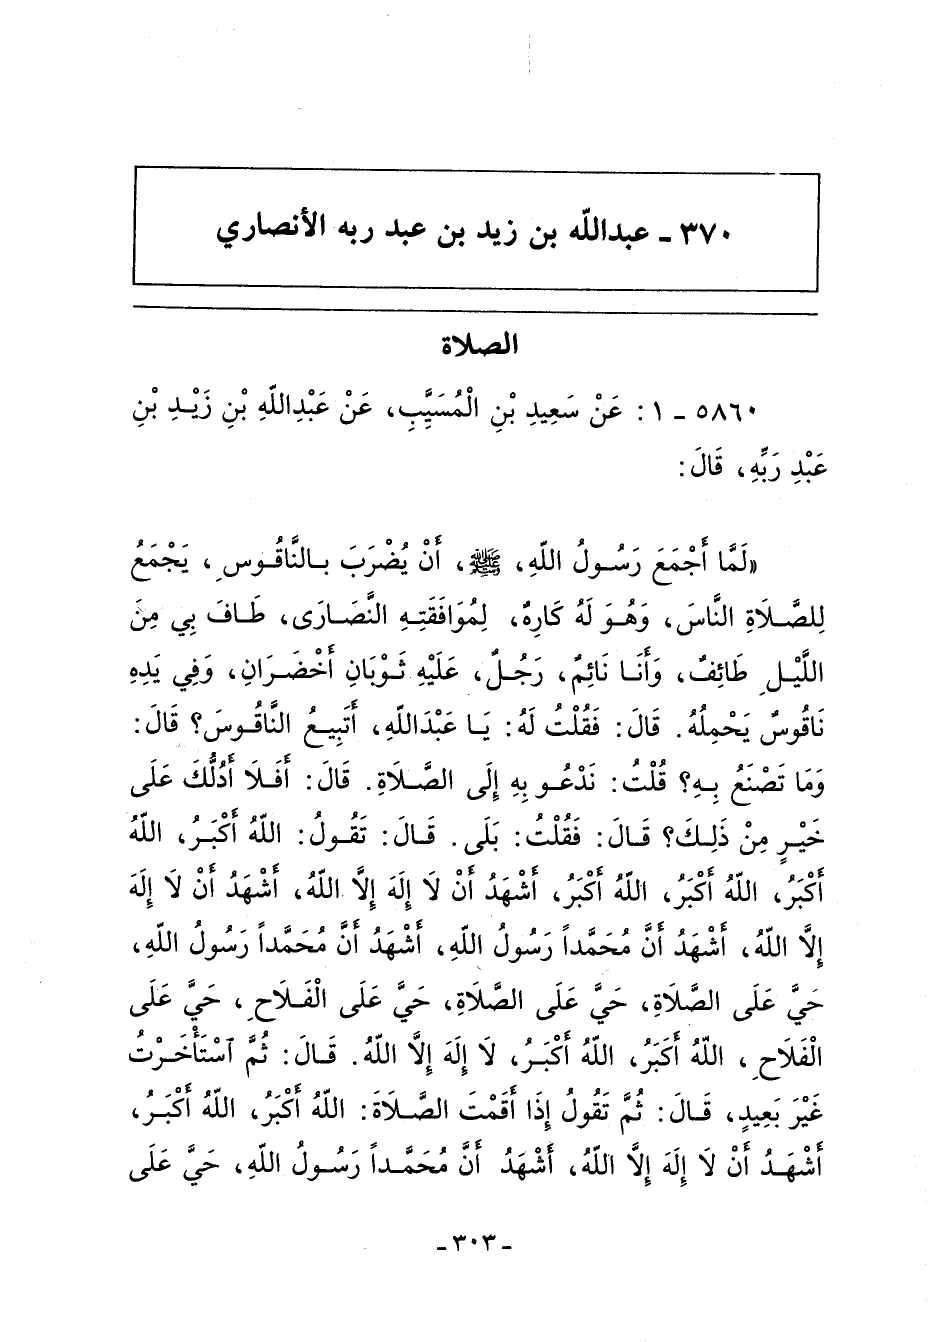 ٣٧٠ ـ عبدالله بن زيد بن عبد ربه الأنصاري
الصلاة
٥٨٦٠ ـ ١ : عَنْ سَعِيدِ بْنِ الْمُسَيَّبِ، عَنْ عَبْدِاللَّهِ بْنِ زَيْدِ بْنِ
عَبْدِ رَبِّهِ، قَالَ:
«لَمَّا أَجْمَعَ رَسُولُ اللَّهِ، ﷺ، أَنْ يُضْرَبَ بِالنَّاقُوسِ، يَجْمَعُ
لِلصَّلَاةِ النَّاسَ، وَهُوَ لَهُ كَارِهٌ، لِمُوَافَقَتِهِ النَّصَارَى، طَافَ بِي مِنَ
اللَّيْلِ طَائِفٌ، وَأَنَا نَائِمٌ، رَجُلٌ، عَلَيْهِ ثَوْبَانِ أَخْضَرَانِ، وَفِي يَدِهِ
نَاقُوسٌ يَحْمِلُهُ. قَالَ: فَقُلْتُ لَهُ: يَا عَبْدَاللَّهِ، أَتَبِيعُ النَّاقُوسَ؟ قَالَ:
وَمَا تَصْنَعُ بِهِ؟ قُلْتُ: نَدْعُو بِهِ إِلَى الصَّلَاةِ. قَالَ: أَفَلَا أَدُلُّكَ عَلَى
خَيْرٍ مِنْ ذَلِكَ؟ قَالَ: فَقُلْتُ: بَلَى. قَالَ: تَقُولُ: اللَّهُ أَكْبَرُ، اللَّهُ
أَكْبَرُ، اللَّهُ أَكْبَرُ، اللَّهُ أَكْبَرُ، أَشْهَدُ أَنْ لَا إِلَهَ إِلَّا اللَّهُ، أَشْهَدُ أَنْ لَا إِلَهَ
إِلَّا اللَّهُ، أَشْهَدُ أَنَّ مُحَمَّداً رَسُولُ اللَّهِ، أَشْهَدُ أَنَّ مُحَمَّداً رَسُولُ اللَّهِ،
حَيَّ عَلَى الصَّلَاةِ، حَيَّ عَلَى الصَّلَاةِ، حَيَّ عَلَى الْفَلَاحِ، حَيَّ عَلَى
الْفَلَاحِ، اللَّهُ أَكْبَرُ، اللَّهُ أَكْبَرُ، لَا إِلَهَ إِلَّا اللَّهُ. قَالَ: ثُمَّ ٱسْتَأْخَرْتُ
غَيْرَ بَعِيدٍ، قَالَ: ثُمَّ تَقُولُ إِذَا أَقَمْتَ الصَّلَاةَ: اللَّهُ أَكْبَرُ، اللَّهُ أَكْبَرُ،
أَشْهَدُ أَنْ لَا إِلَهَ إِلَّا اللَّهُ، أَشْهَدُ أَنَّ مُحَمَّداً رَسُولُ اللَّهِ، حَيَّ عَلَى
ـ ٣٠٣ ـ